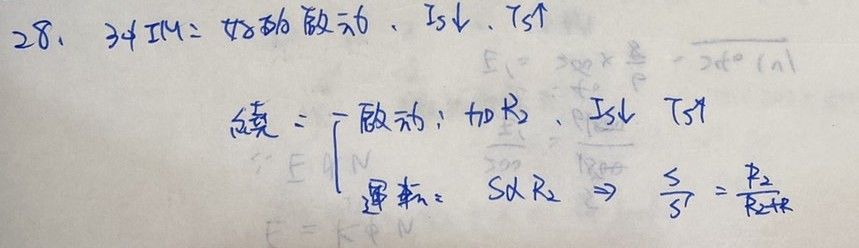 28. 3φIM: 好的啟动、Is↓、Ts↑
繞 = 啟动: 加R₂、Is↓ Ts↑
運転: S∝R₂ ⇒ S/S' = R₂/R₂+R